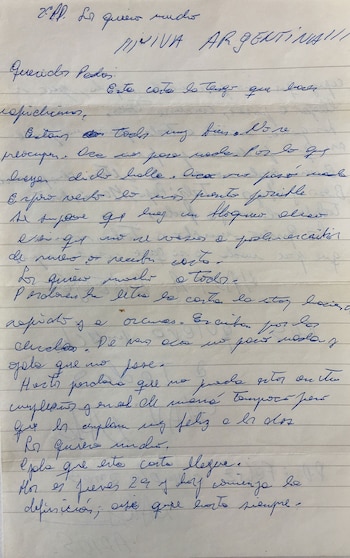 Los quiero mucho
¡¡¡VIVA ARGENTINA!!!
Queridos Padres
Esta carta la tengo que hacer
rapidísimo.
Estamos todos muy bien. No se
preocupen. Aca no paso nada. Por lo que
hayan dicho halla. Aca no pasó nada
Espero verlos lo más pronto posible
Se supone que hay un bloqueo aereo
o sea que no se vamos a poder escribir
de nuevo o recibir carta.
Los quiero mucho a todos.
Perdonen la letra la carta la estoy haciendo
rapido y a oscuras. Escriban por las
dudas. De paso aca no pasó nada y
ojala que no pase.
Martín perdona que no pueda estar en tu
cumpleaños y en el de mamá tampoco pero
que los cumplan muy feliz a los dos
Los quiero mucho.
Ojala que esta carta llegue.
Hoy es jueves 29 y hoy comienza lo
definitivo; asi que hasta siempre.